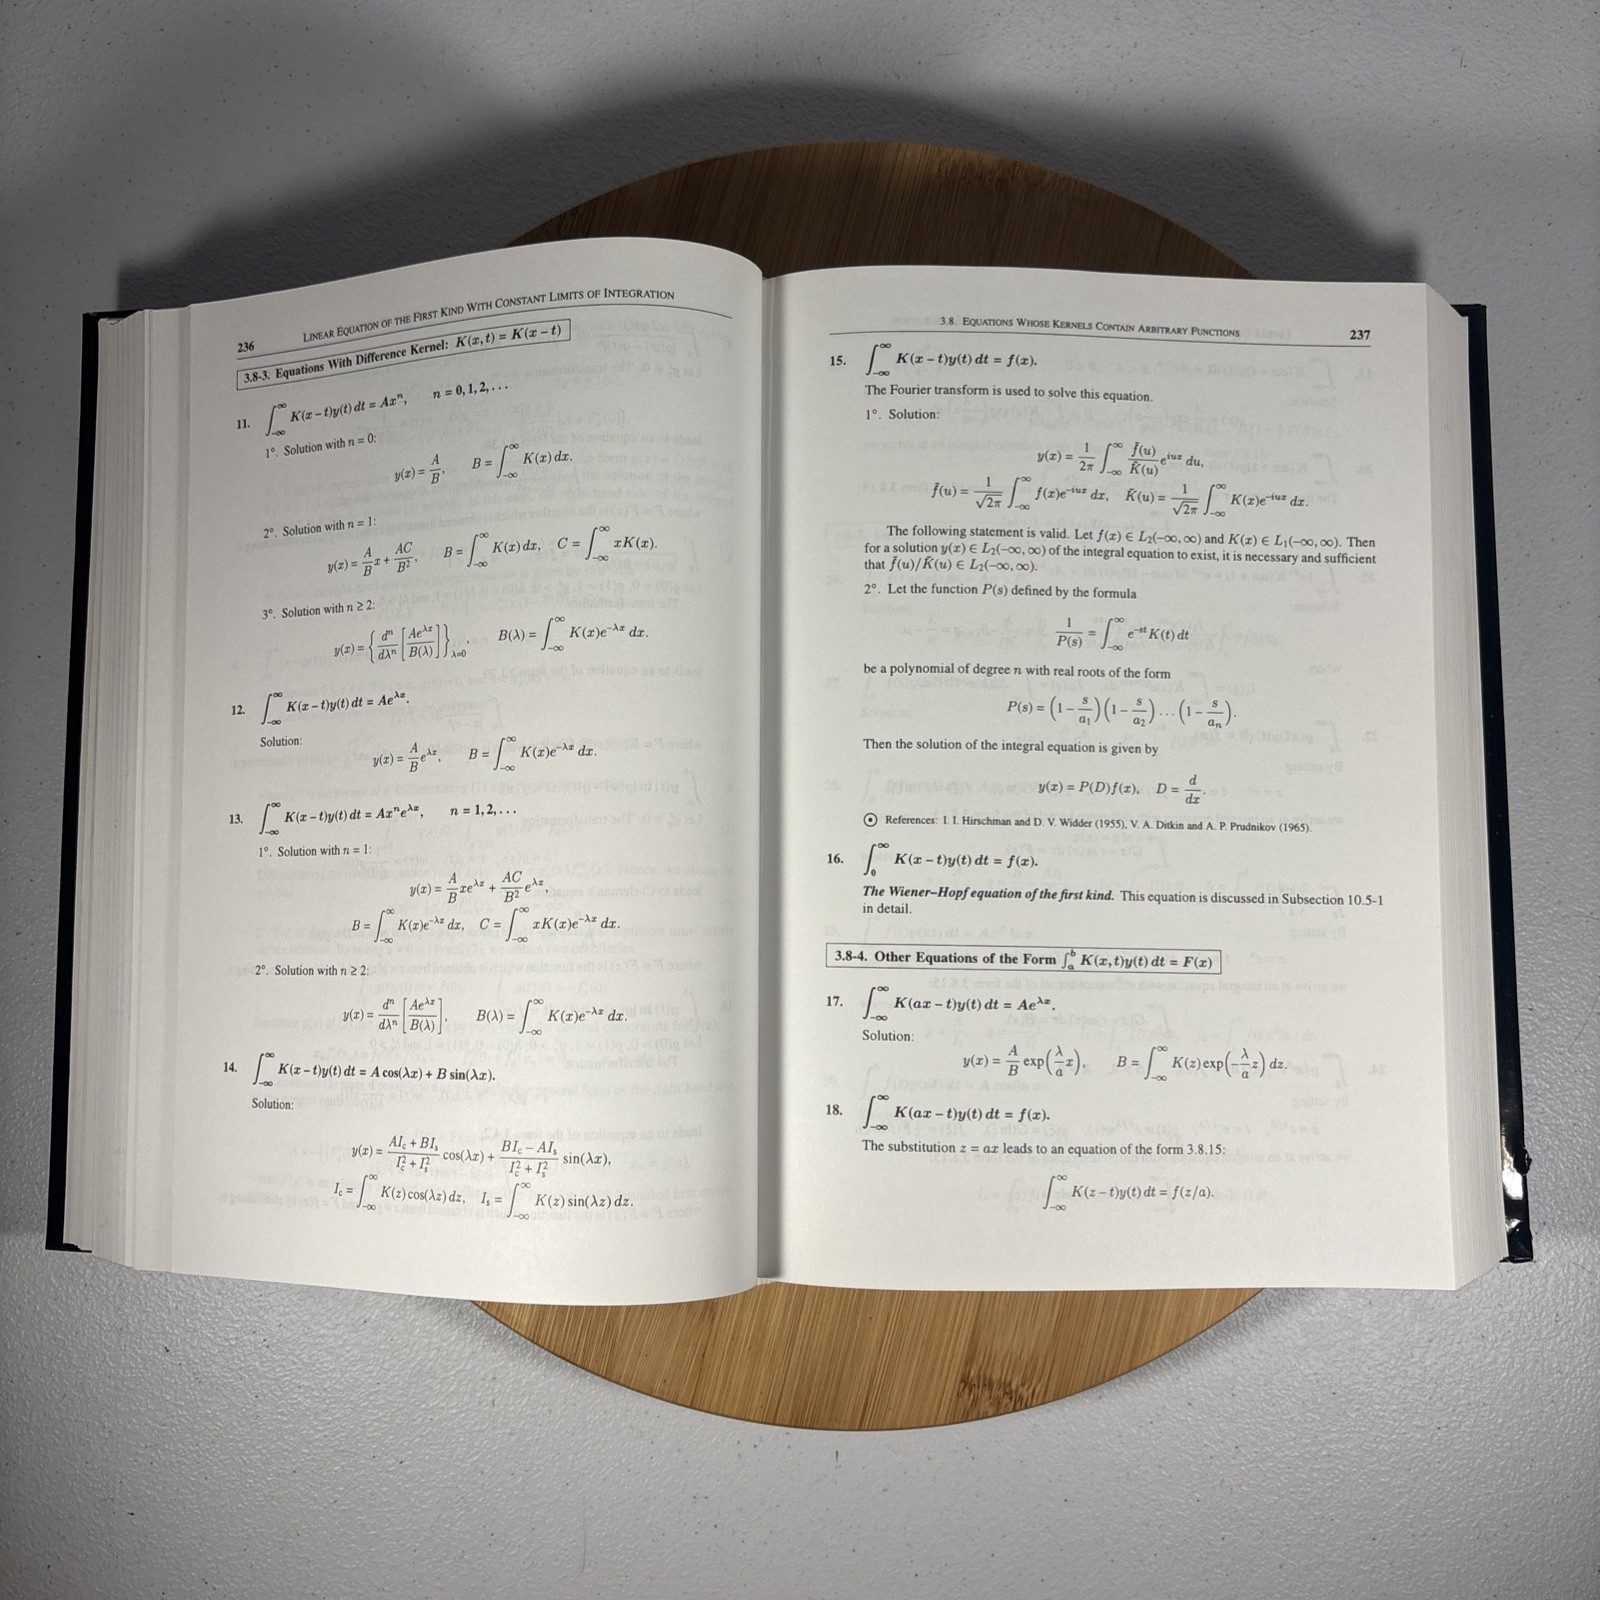 236 LINEAR EQUATION OF THE FIRST KIND WITH CONSTANT LIMITS OF INTEGRATION
3.8-3. Equations With Difference Kernel: K(x, t) = K(x − t)
11. ∫_{−∞}^{∞} K(x − t)y(t) dt = Ax^n, n = 0, 1, 2, . . .
1°. Solution with n = 0:
y(x) = A/B, B = ∫_{−∞}^{∞} K(x) dx.
2°. Solution with n = 1:
y(x) = (A/B)x + AC/B², B = ∫_{−∞}^{∞} K(x) dx, C = ∫_{−∞}^{∞} xK(x).
3°. Solution with n ≥ 2:
y(x) = {d^n/dλ^n [Ae^{λx}/B(λ)]}_{λ=0}, B(λ) = ∫_{−∞}^{∞} K(x)e^{−λx} dx.
12. ∫_{−∞}^{∞} K(x − t)y(t) dt = Ae^{λx}.
Solution:
y(x) = (A/B)e^{λx}, B = ∫_{−∞}^{∞} K(x)e^{−λx} dx.
13. ∫_{−∞}^{∞} K(x − t)y(t) dt = Ax^n e^{λx}, n = 1, 2, . . .
1°. Solution with n = 1:
y(x) = (A/B)xe^{λx} + (AC/B²)e^{λx},
B = ∫_{−∞}^{∞} K(x)e^{−λx} dx, C = ∫_{−∞}^{∞} xK(x)e^{−λx} dx.
2°. Solution with n ≥ 2:
y(x) = d^n/dλ^n [Ae^{λx}/B(λ)], B(λ) = ∫_{−∞}^{∞} K(x)e^{−λx} dx.
14. ∫_{−∞}^{∞} K(x − t)y(t) dt = A cos(λx) + B sin(λx).
Solution:
y(x) = (AI_c + BI_s)/(I_c² + I_s²) cos(λx) + (BI_c − AI_s)/(I_c² + I_s²) sin(λx),
I_c = ∫_{−∞}^{∞} K(z) cos(λz) dz, I_s = ∫_{−∞}^{∞} K(z) sin(λz) dz.
3.8. EQUATIONS WHOSE KERNELS CONTAIN ARBITRARY FUNCTIONS 237
15. ∫_{−∞}^{∞} K(x − t)y(t) dt = f(x).
The Fourier transform is used to solve this equation.
1°. Solution:
y(x) = (1/2π) ∫_{−∞}^{∞} (f̃(u)/K̃(u)) e^{iux} du,
f̃(u) = (1/√2π) ∫_{−∞}^{∞} f(x)e^{−iux} dx, K̃(u) = (1/√2π) ∫_{−∞}^{∞} K(x)e^{−iux} dx.
The following statement is valid. Let f(x) ∈ L₂(−∞, ∞) and K(x) ∈ L₁(−∞, ∞). Then
for a solution y(x) ∈ L₂(−∞, ∞) of the integral equation to exist, it is necessary and sufficient
that f̃(u)/K̃(u) ∈ L₂(−∞, ∞).
2°. Let the function P(s) defined by the formula
1/P(s) = ∫_{−∞}^{∞} e^{−st} K(t) dt
be a polynomial of degree n with real roots of the form
P(s) = (1 − s/a₁)(1 − s/a₂) . . . (1 − s/a_n).
Then the solution of the integral equation is given by
y(x) = P(D)f(x), D = d/dx.
⊙ References: I. I. Hirschman and D. V. Widder (1955), V. A. Ditkin and A. P. Prudnikov (1965).
16. ∫_{0}^{∞} K(x − t)y(t) dt = f(x).
The Wiener–Hopf equation of the first kind. This equation is discussed in Subsection 10.5-1
in detail.
3.8-4. Other Equations of the Form ∫_{a}^{b} K(x, t)y(t) dt = F(x)
17. ∫_{−∞}^{∞} K(ax − t)y(t) dt = Ae^{λx}.
Solution:
y(x) = (A/B) exp((λ/a)x), B = ∫_{−∞}^{∞} K(z) exp(−(λ/a)z) dz.
18. ∫_{−∞}^{∞} K(ax − t)y(t) dt = f(x).
The substitution z = ax leads to an equation of the form 3.8.15:
∫_{−∞}^{∞} K(z − t)y(t) dt = f(z/a).